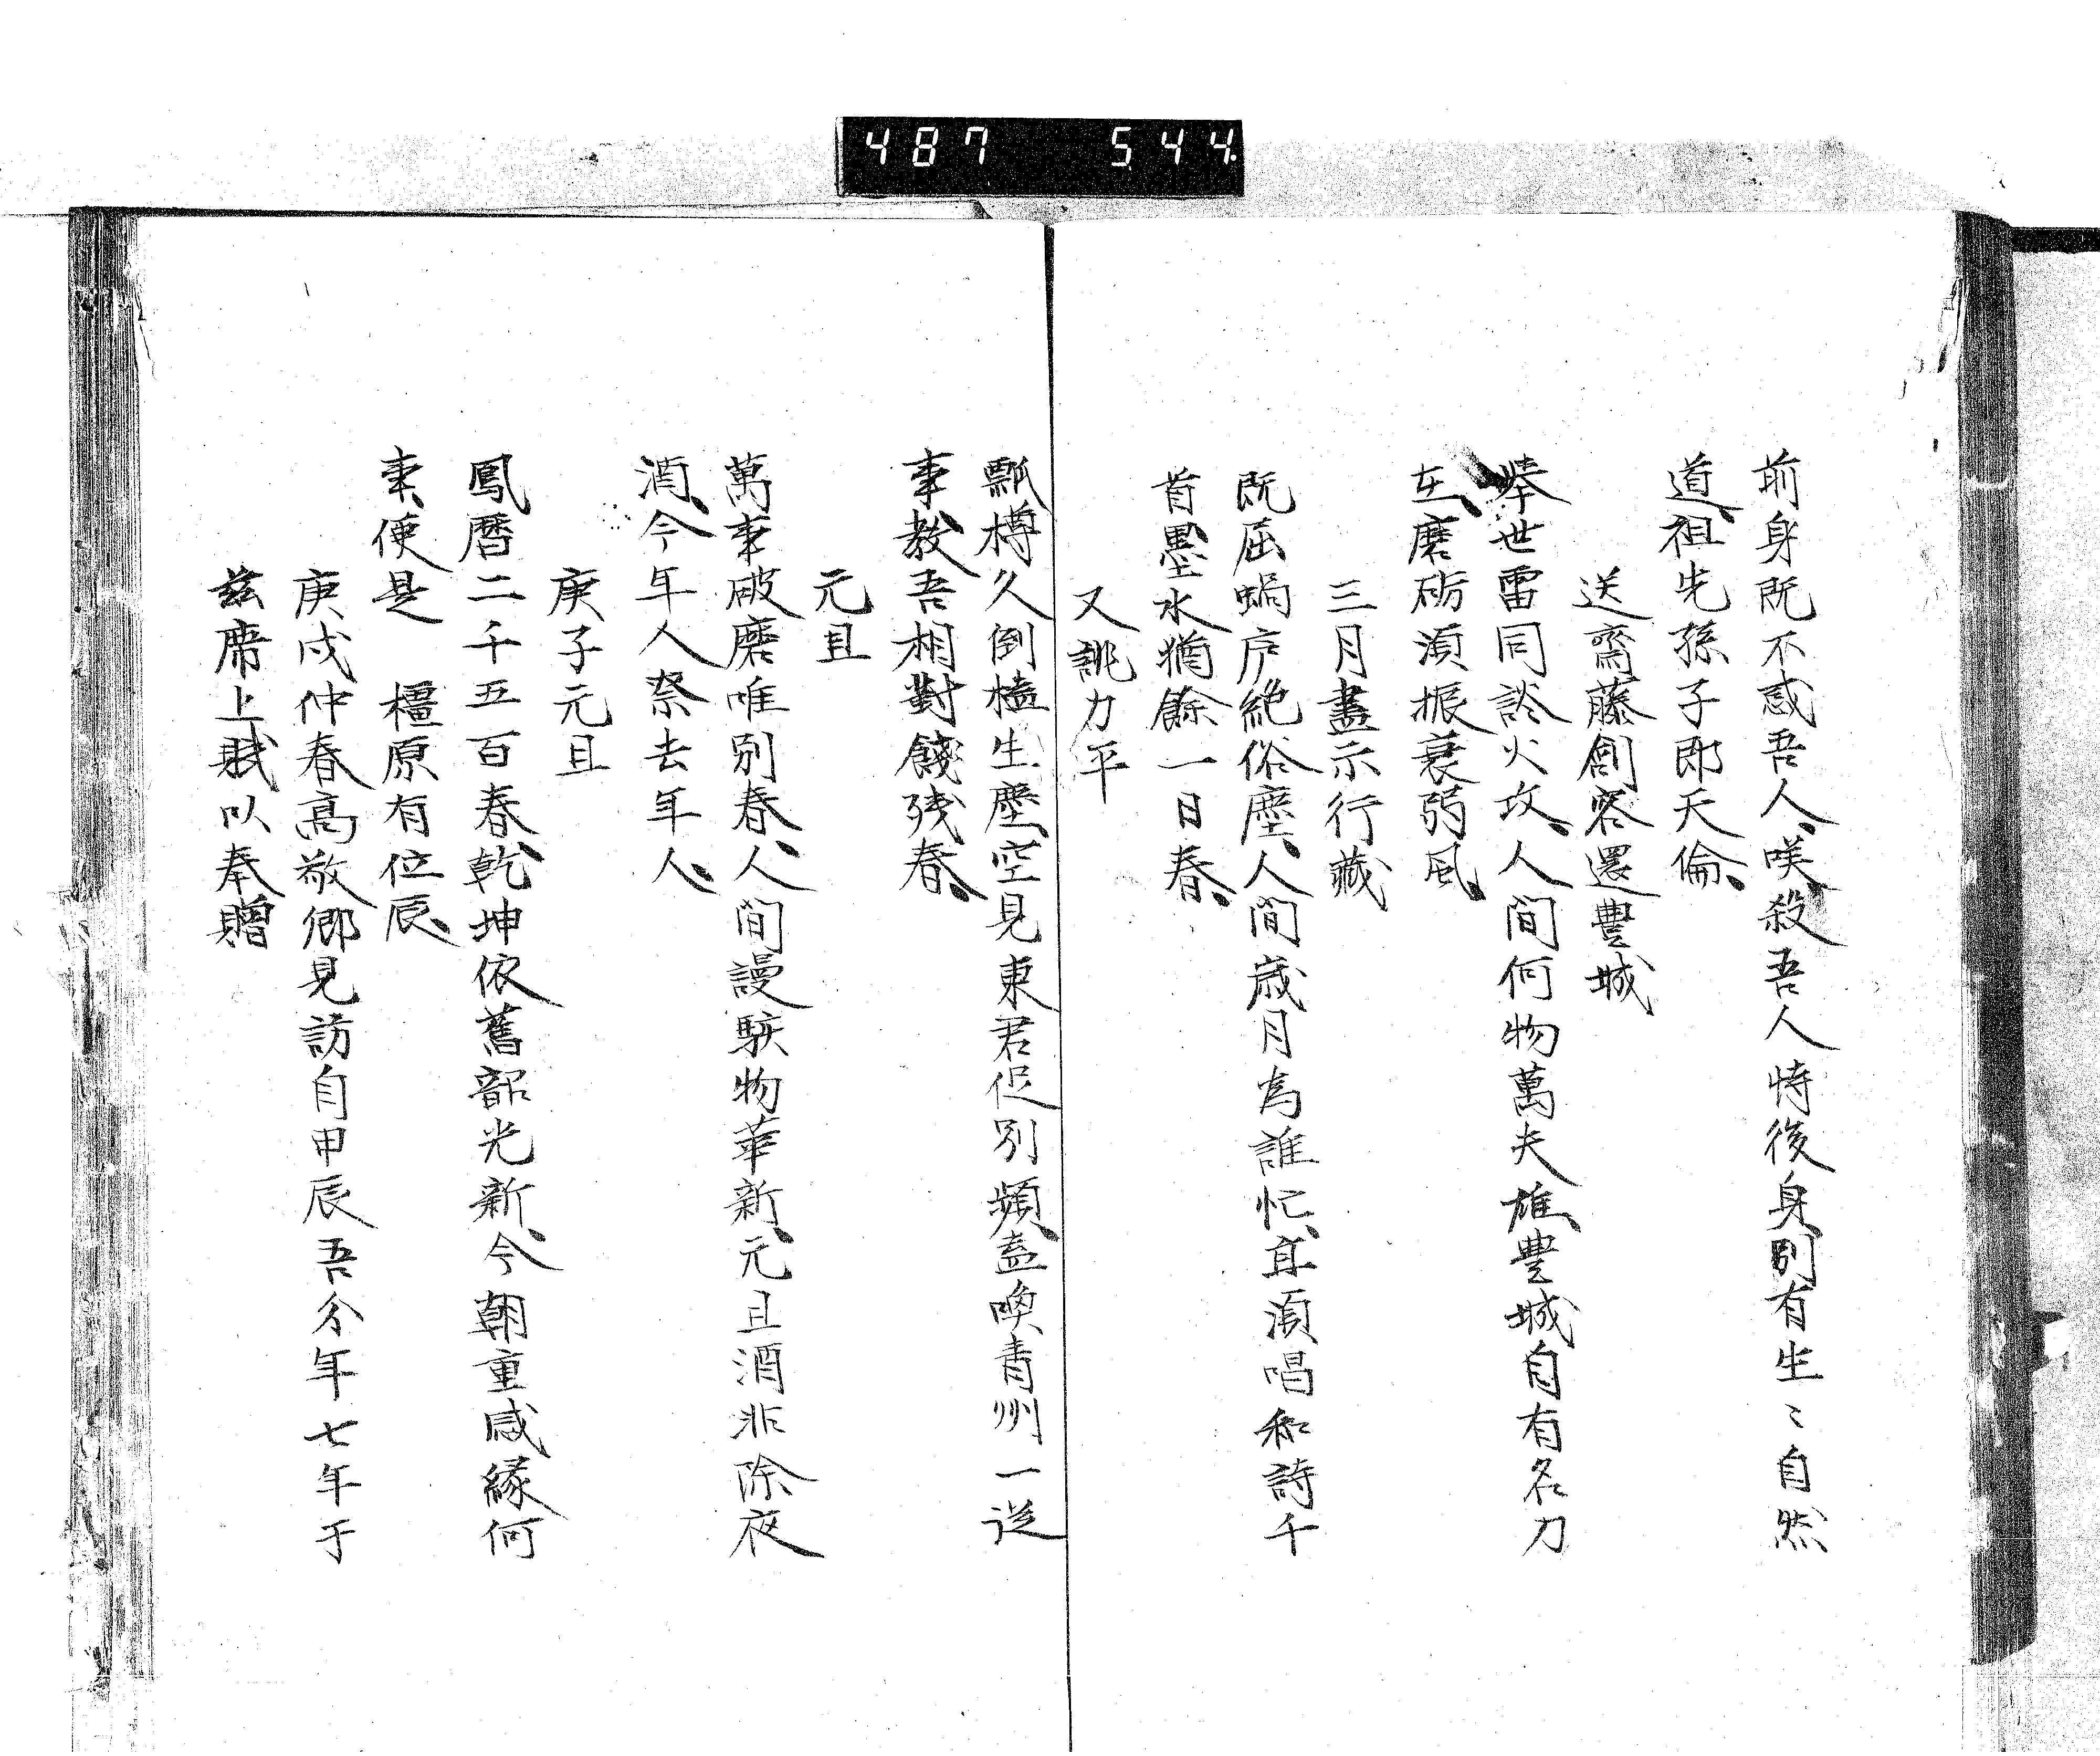 487 544.
前身既不惑吾人、咲殺吾人恃後身、別有生〻自然
道、祖先孫子即天倫、
送齋藤劍客還豐城
挙世雷同談火攻、人間何物萬夫雄、豐城自有名刀
在、磨砺須振衰弱風、
三月盡示行藏
既屈蝸庐絶俗塵、人間歳月為誰忙、耳須唱和詩千
首墨水猶餘一日春、
又誂力平
瓢樽久倒榼生塵、空見東君促別頻、盍喚青州一送
事、教吾相對餞残春、
元旦
萬事破磨唯別春、人間謾駭物華新、元旦酒非除夜
酒、今年人祭去年人、
庚子元旦
鳳暦二千五百春、乾坤依舊韶光新、今朝重感縁何
事、便是 橿原有位辰、
庚戌仲春高敬卿見訪自甲辰吾分年七年于
茲席上賦以奉贈